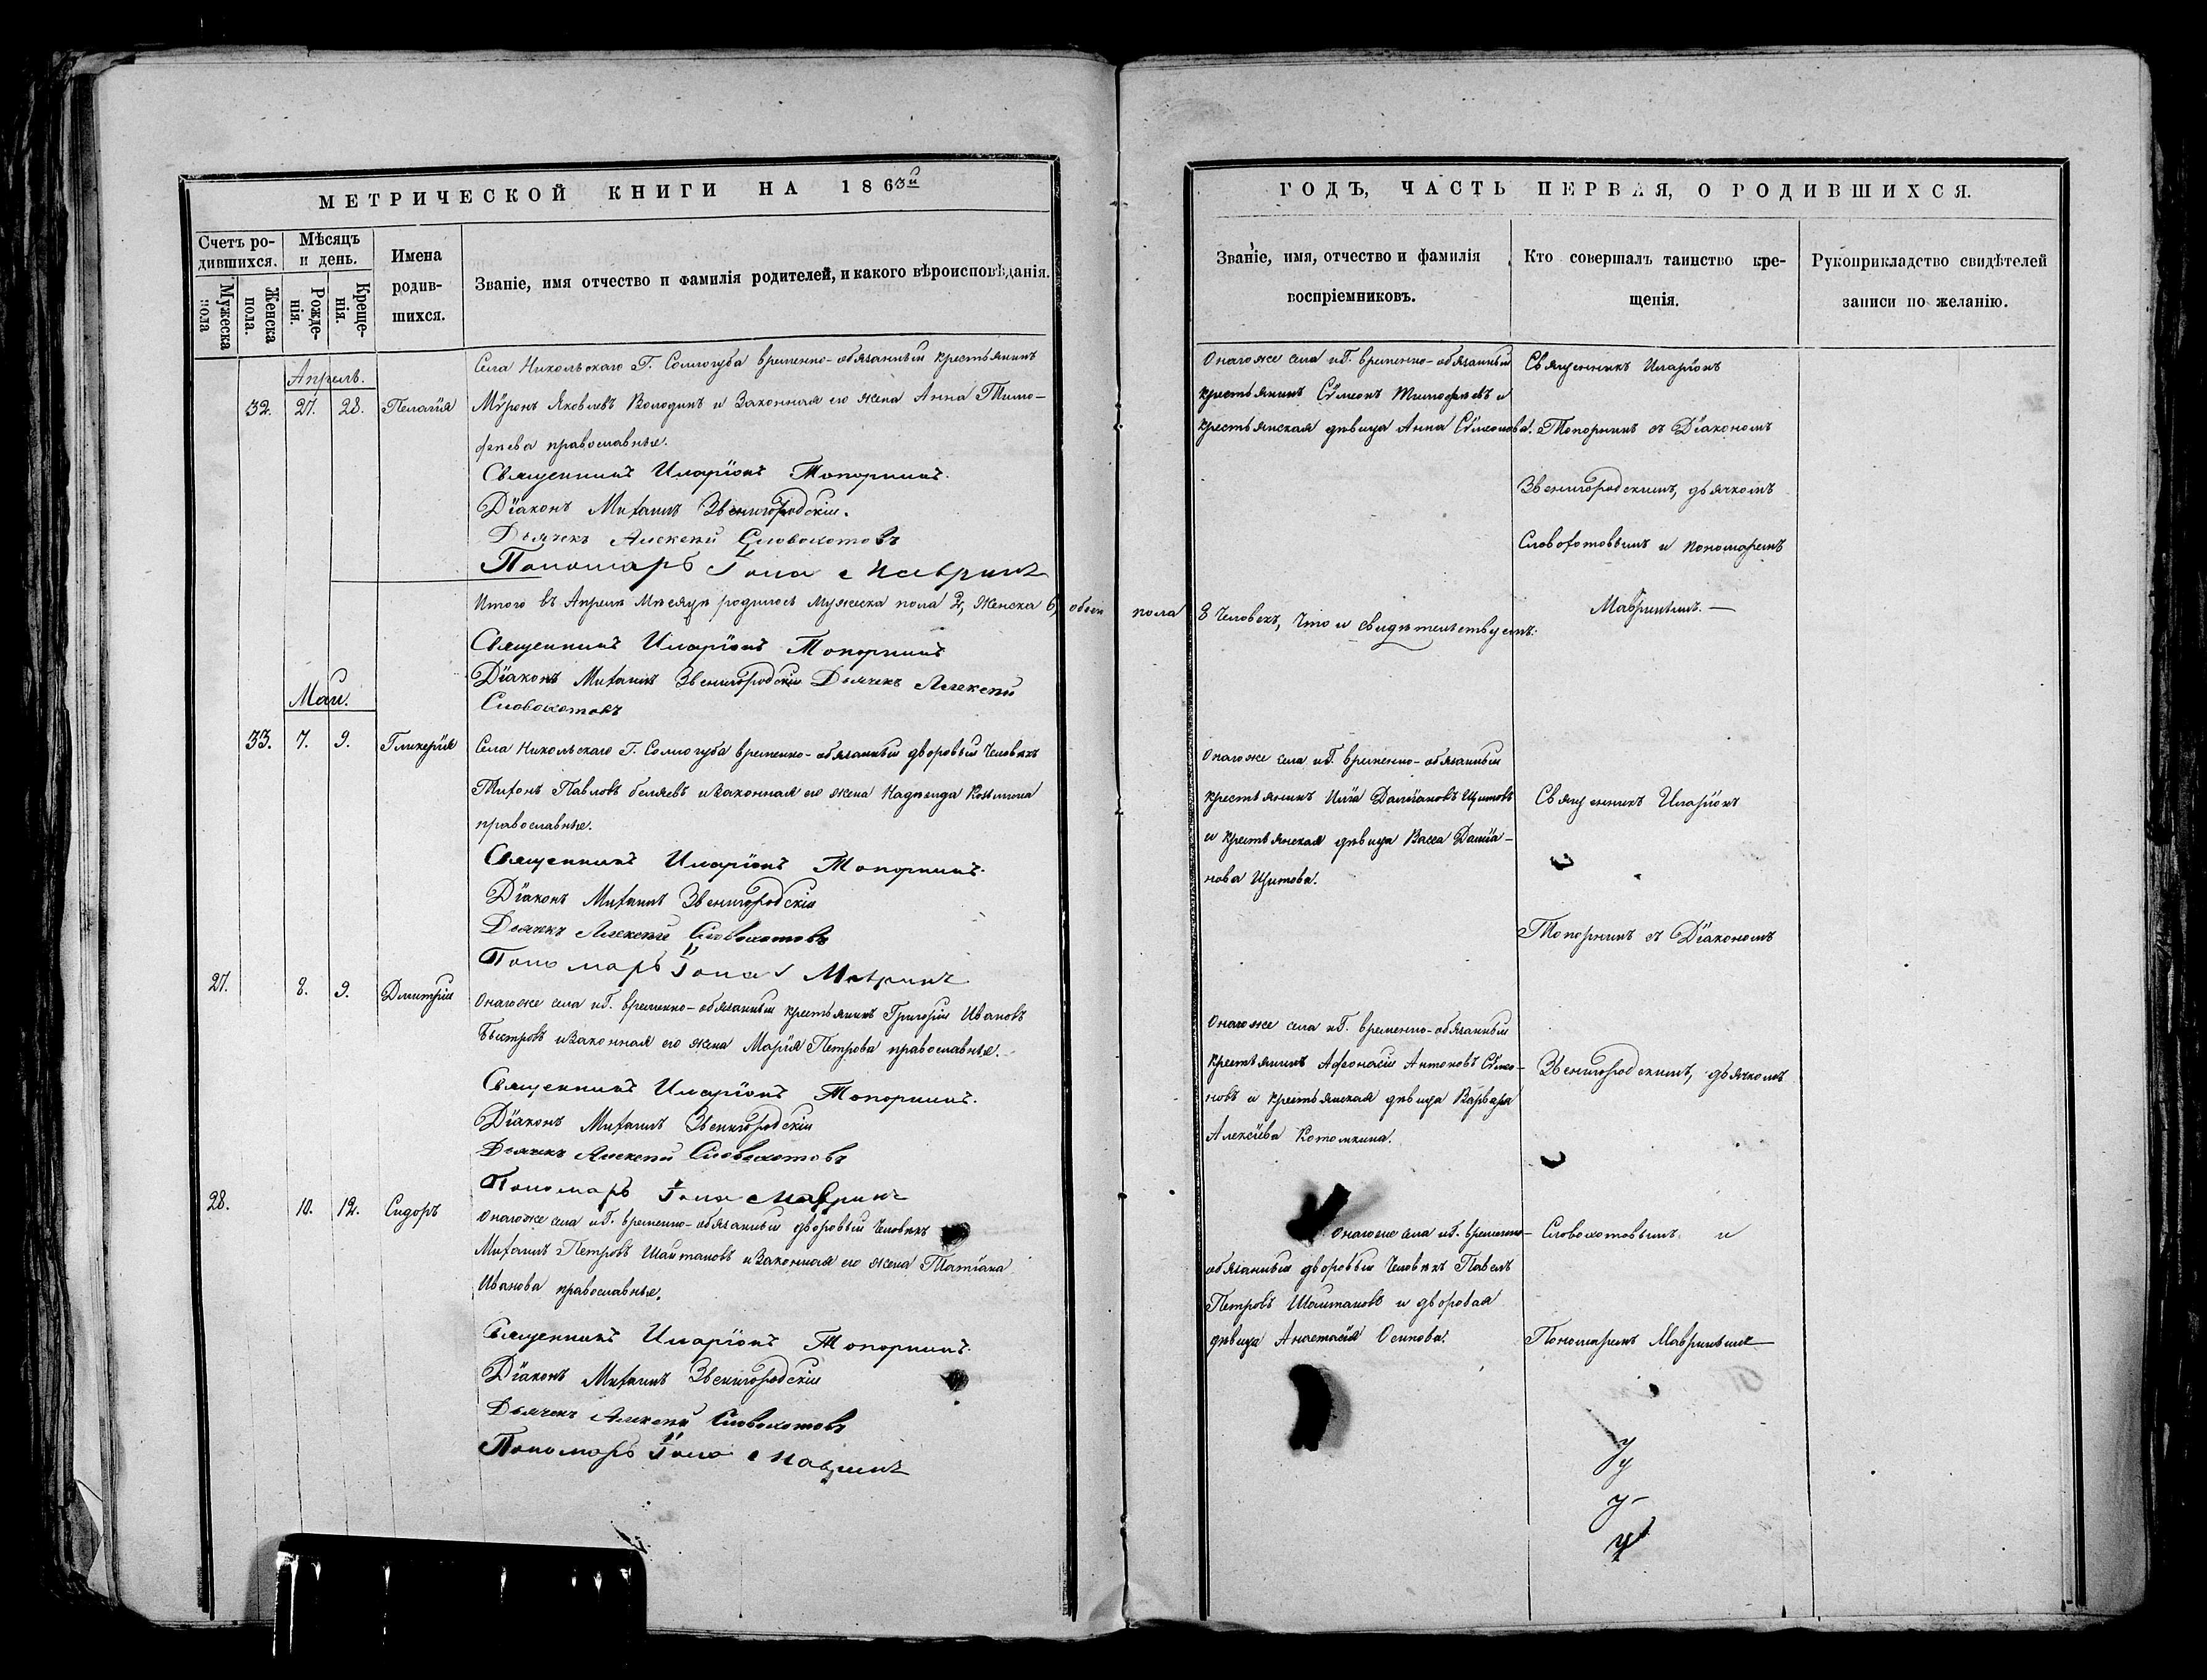 МЕТРИЧЕСКОЙ КНИГИ НА 1863й
Счетъ ро-
дившихся.
Мѣсяцъ
и день.
Имена
родив-
шихся.
Званіе, имя отчество и фамилія родителей, и какого вѣроисповѣданія.
Мужеска
пола
Женска
пола.
Рожде-
нія.
Креще-
нія.
Апрель.
32. 27. 28. Пелагія
Села Никольскаго Г. Соллогуба временно-обязанный крестьянинъ
Мѵронъ Яковлевъ Володинъ и законная его жена Анна Тимо-
фѣева православные.
Священникъ Иларіонъ Топорнинъ.
Діаконъ Михаилъ Звенигородскій.
Дьячекъ Алексѣй Словохотовъ
Пономарь Іона Мавринъ
Итого въ Апрелѣ Мѣсяцѣ родилось мужеска пола 2, женска 6, обоего пола 8 человекъ, что и свидѣтельствуемъ:
Священникъ Иларіонъ Топорнинъ
Діаконъ Михаилъ Звенигородскій Дьячекъ Алексѣй
Словохотовъ
Май.
33. 7. 9. Гликерія
Села Никольскаго Г. Соллогуба временно-обязанный дворовый человѣкъ
Тихонъ Павловъ Беляевъ и законная его жена Надежда Козьмина
православные.
Священникъ Иларіонъ Топорнинъ.
Діаконъ Михаилъ Звенигородскій
Дьячекъ Алексѣй Словохотовъ
Пономарь Іона Мавринъ
27. 8. 9. Дмитрій
Онагоже села и Г. временно-обязанный крестьянинъ Григорій Ивановъ
Быстровъ и законная его жена Марія Петрова православные.
Священникъ Иларіонъ Топорнинъ.
Діаконъ Михаилъ Звенигородскій
Дьячекъ Алексѣй Словохотовъ
Пономарь Іона Мавринъ
28. 10. 12. Сидоръ
Онагоже села и Г. временно-обязанный дворовый человѣкъ
Михаилъ Петровъ Шайтановъ и законная его жена Татіана
Иванова православные.
Священникъ Иларіонъ Топорнинъ.
Діаконъ Михаилъ Звенигородскій
Дьячекъ Алексѣй Словохотовъ
Пономарь Іона Мавринъ
ГОДЪ, ЧАСТЬ ПЕРВАЯ, О РОДИВШИХСЯ.
Званіе, имя, отчество и фамилія
воспріемниковъ.
Кто совершалъ таинство кре-
щенія.
Рукоприкладство свидѣтелей
записи по желанію.
Онагоже села и Г. временно-обязанный
крестьянинъ Сѵмеонъ Тимофѣевъ и
крестьянская дѣвица Анна Сѵмеонова.
Священникъ Иларіонъ
Топорнинъ съ Діакономъ
Звенигородскимъ, дьячкомъ
Словохотовымъ и пономаремъ
Мавринымъ.
Онагоже села и Г. временно-обязанный
крестьянинъ Илія Даміановъ Щитовъ
и крестьянская дѣвица Васса Даміа-
нова Щитова.
Священникъ Иларіонъ
Топорнинъ съ Діакономъ
Онагоже села и Г. временно-обязанный
крестьянинъ Афонасій Антоновъ Сѵмео-
новъ и крестьянская дѣвица Варвара
Алексіева Котомкина.
Звенигородскимъ, дьячкомъ
Онагоже села и Г. временно-
обязанный дворовый человѣкъ Павелъ
Петровъ Шайтановъ и дворовая
дѣвица Анастасія Осипова.
Словохотовымъ и
Пономаремъ Мавринымъ